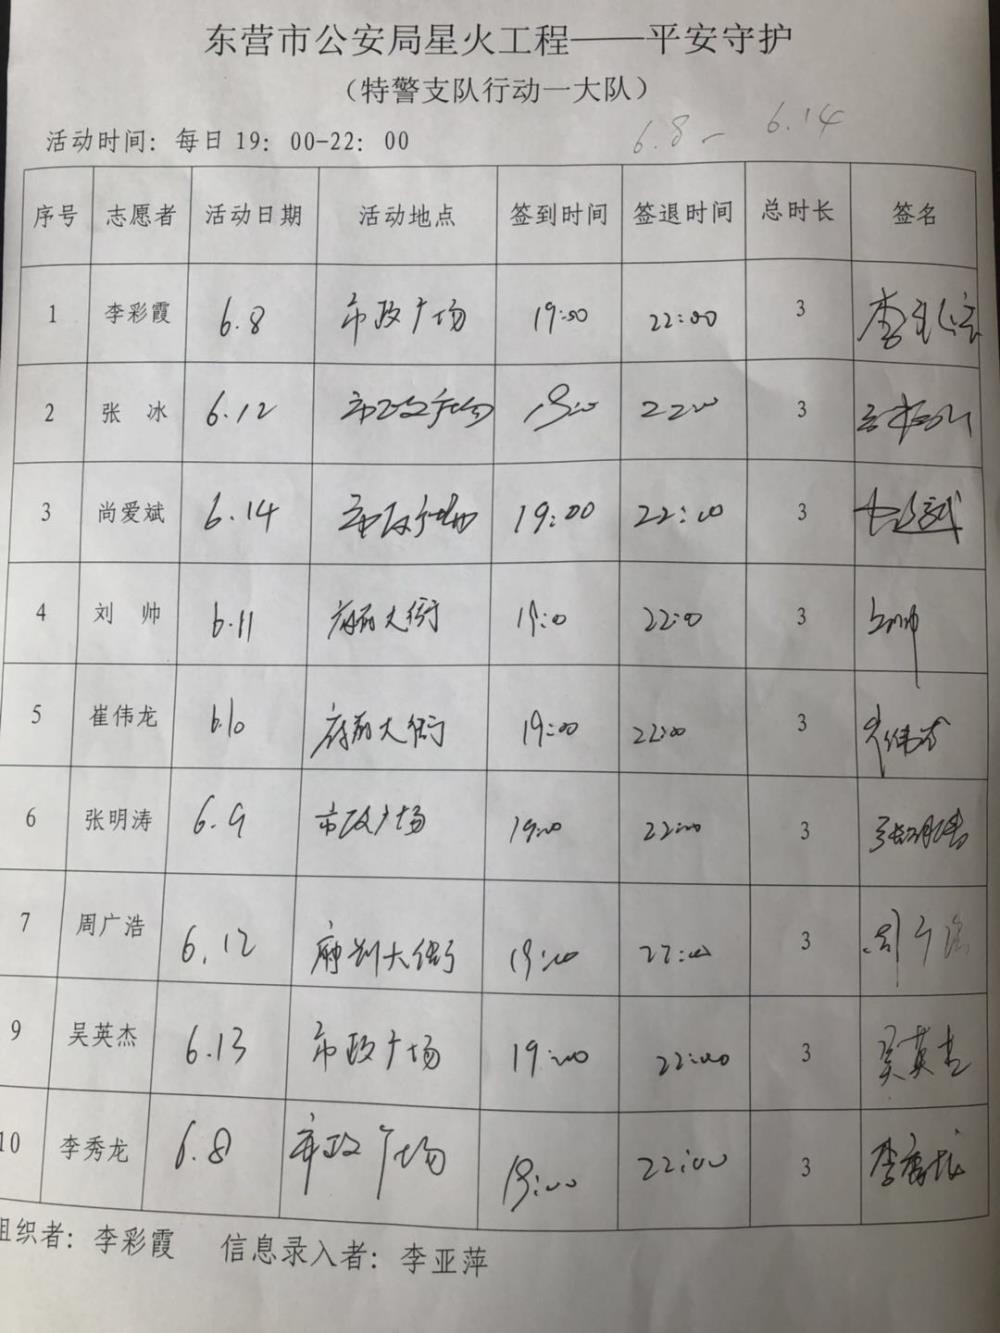 东营市公安局星火工程——平安守护
（特警支队行动一大队）
6.8 - 6.14
活动时间：每日 19：00-22：00
序号 志愿者 活动日期 活动地点 签到时间 签退时间 总时长 签名
1 李彩霞 6.8 市政广场 19:00 22:00 3
2 张 冰 6.12 市政广场 19:00 22:00 3
3 尚爱斌 6.14 市政广场 19:00 22:00 3
4 刘 帅 6.11 府前大街 19:00 22:00 3
5 崔伟龙 6.10 府前大街 19:00 22:00 3 崔伟龙
6 张明涛 6.9 市政广场 19:00 22:00 3 张明涛
7 周广浩 6.12 府前大街 19:00 22:00 3 周广浩
9 吴英杰 6.13 市政广场 19:00 22:00 3 吴英杰
10 李秀龙 6.8 市政广场 19:00 22:00 3 李秀龙
组织者：李彩霞 信息录入者：李亚萍